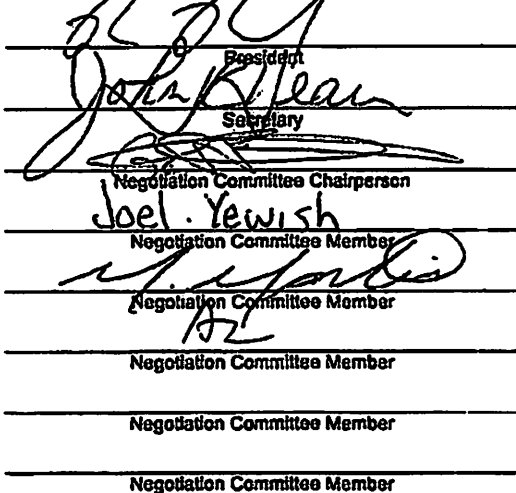 President
John
Secretary
Negotiation Committee Chairperson
Joel. Yewish
Negotiation Committee Member
Negotiation Committee Member
Negotiation Committee Member
Negotiation Committee Member
Negotiation Committee Member